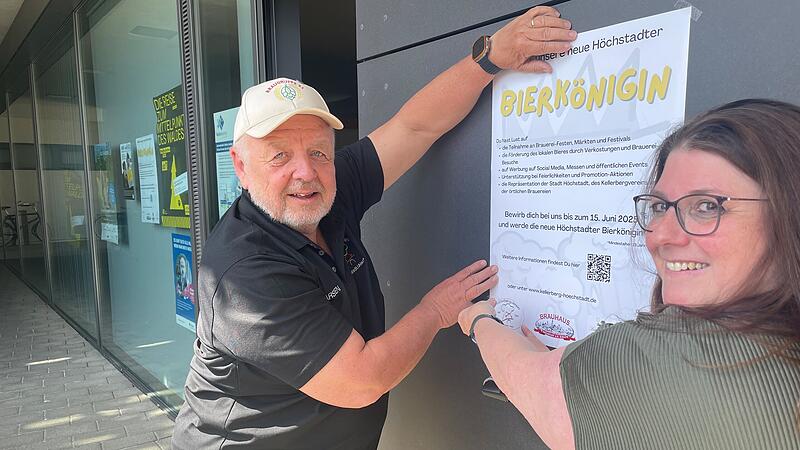 unsere neue Höchstadter
BIERKÖNIGIN
Du hast Lust auf
die Teilnahme an Brauerei-Festen, Märkten und Festivals
die Förderung des lokalen Bieres durch Verkostungen und Brauerei-
Besuche
auf Werbung auf Social Media, Messen und öffentlichen Events
Unterstützung bei Feierlichkeiten und Promotion-Aktionen
die Repräsentation der Stadt Höchstadt, des Kellerberg
der örtlichen Brauereien
Bewirb dich bei uns bis zum 15. Juni 2025
und werde die neue Höchstadter Bierkönigin.
Weitere Informationen findest Du hier
oder unter www.kellerberg-hoechstadt.de
BRAUHAUS
DIE REISE
ZUM
MITTELPUNKT
DES WALDES